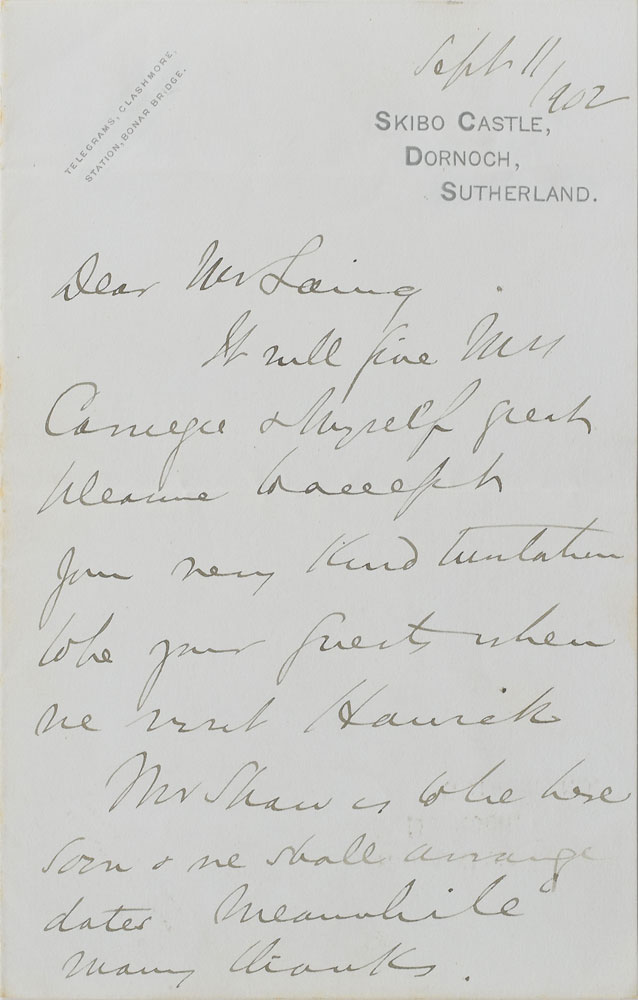 TELEGRAMS, CLASHMORE,
STATION, BONAR BRIDGE.
Sept 11/902
SKIBO CASTLE,
DORNOCH,
SUTHERLAND.
Dear Mr Laing
It will give Mrs
Carnegie & Myself great
pleasure to accept
your very Kind Invitation
to be your Guests when
we visit Hawick
Mr Shaw is to be here
soon & we shall arrange
dates Meanwhile
many thanks.